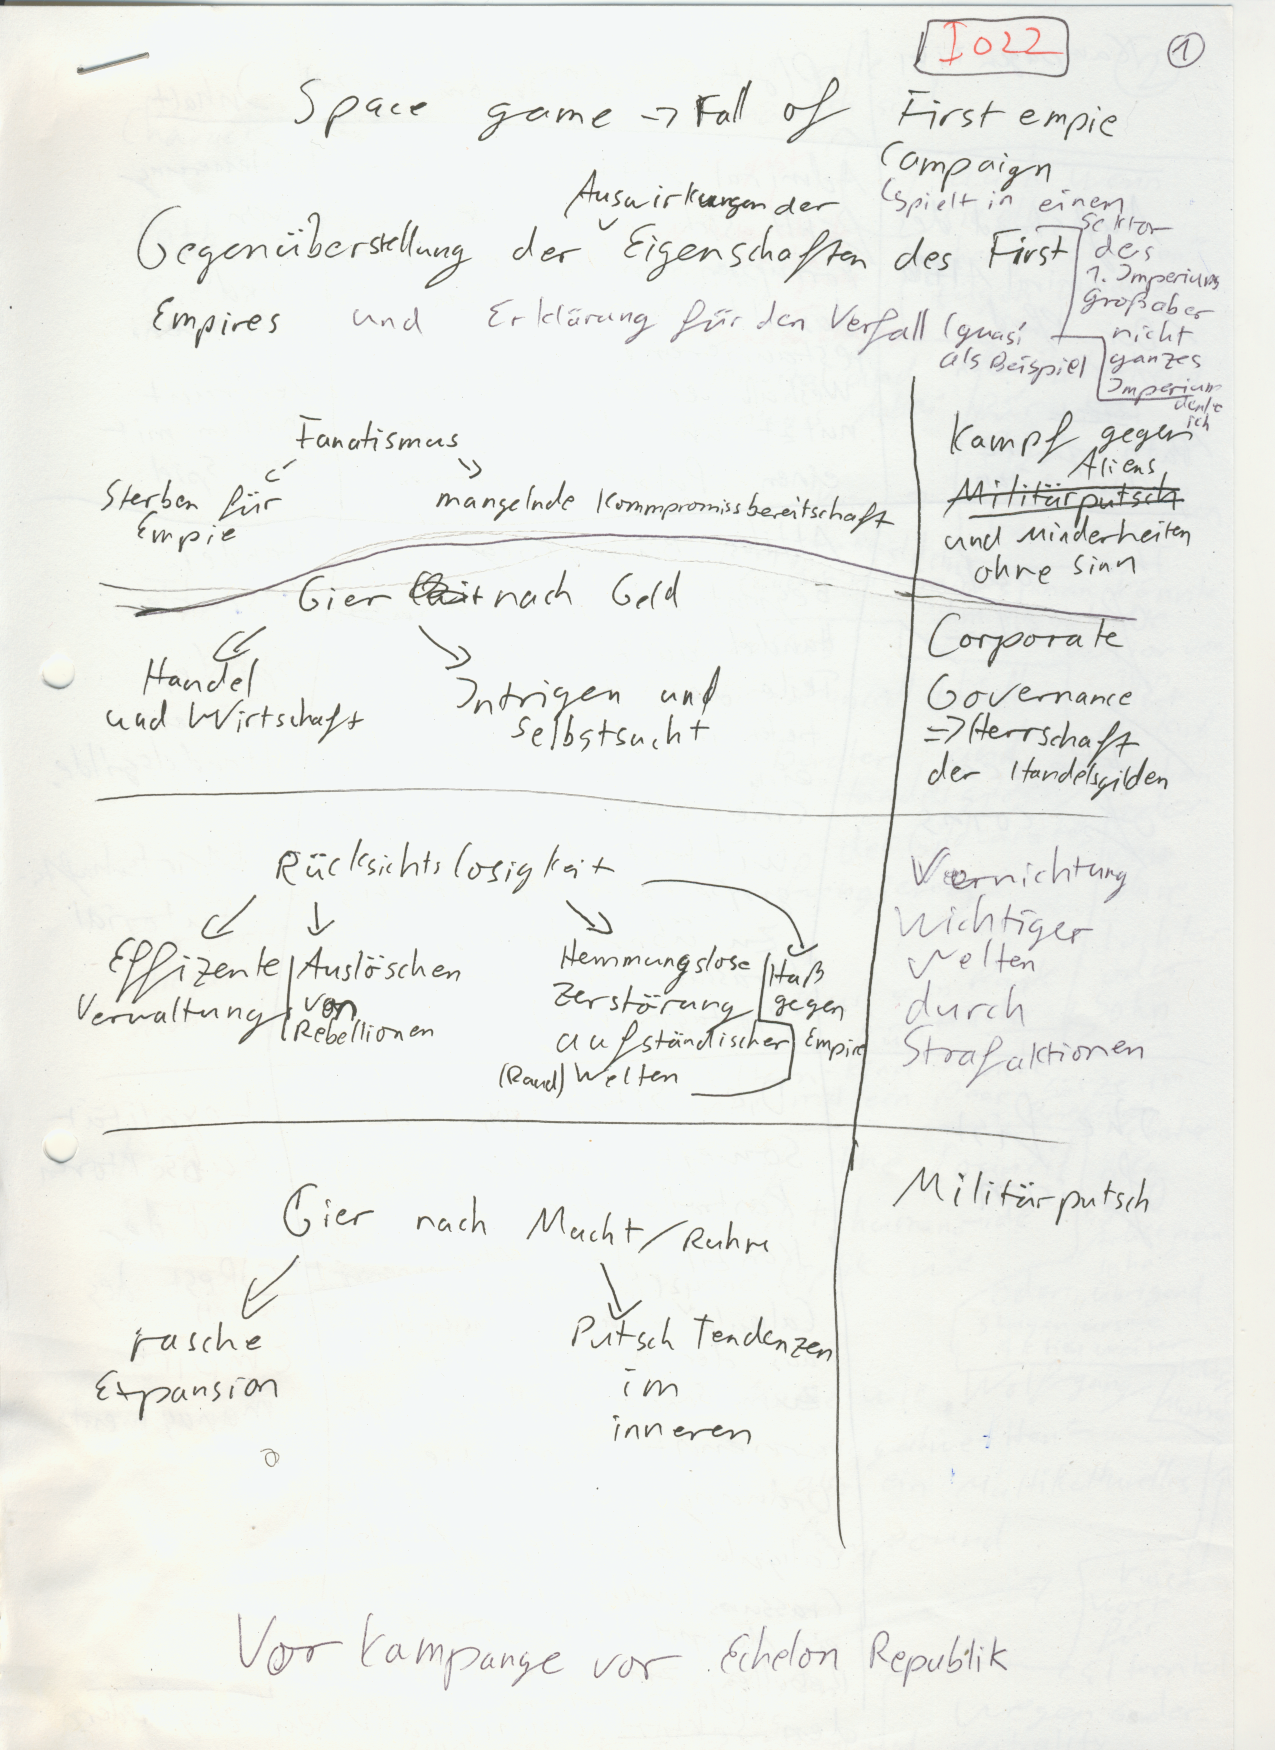 I022
1
Space game -> Fall of First empie
Campaign
(spielt in einem
Sektor
des
1. Imperiums
Großaber
nicht
ganzes
Imperium
denke
ich
Auswirkungen der
Gegenüberstellung der Eigenschaften des First
Empires und Erklärung für den Verfall (quasi
als Beispiel
Fanatismus
Sterben für
Empie
mangelnde Kommpromissbereitschaft
Kampf gegen
Aliens
Militärputsch
und Minderheiten
ohne Sinn
Gier nach Geld
Handel
und Wirtschaft
Intrigen und
Selbstsucht
Corporate
Governance
=> Herrschaft
der Handelsgilden
Rücksichtslosigkeit
Effizente
Verwaltung
Auslöschen
von
Rebellionen
Hemmungslose
Zerstörung
aufständischer
(Rand) Welten
Haß
gegen
Empire
Vernichtung
Wichtiger
Welten
durch
Strafaktionen
Gier nach Macht/Ruhm
rasche
Expansion
Putsch Tendenzen
im
inneren
Militärputsch
Vor Kampange vor Echelon Republik